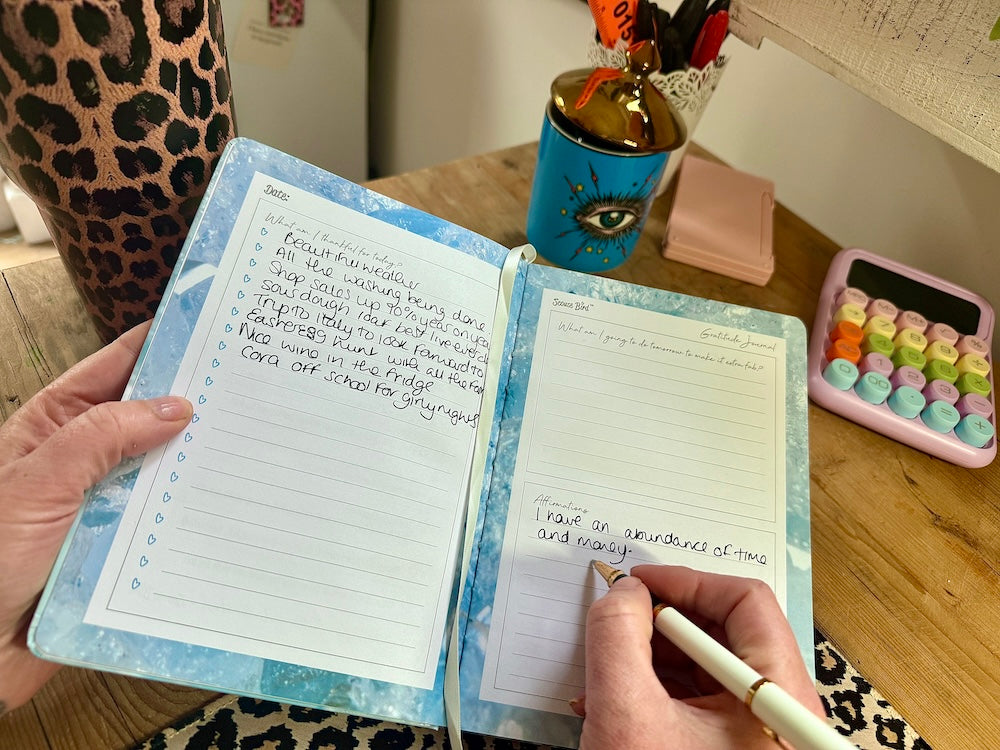 Date:
What am I thankful for today?
Beautiful weather
All the washing being done
Shop sales up 90% year on year
Sourdough loaf best I've ever d
Trip to Italy to look forward to
Easter egg hunt with all the fam
Nice wine in the fridge
Cora off school for girly nights
Scouse Bird™
Gratitude Journal
What am I going to do tomorrow to make it extra fab?
Affirmations
I have an abundance of time
and money.
015
1
2
3
0
00
=
+
%